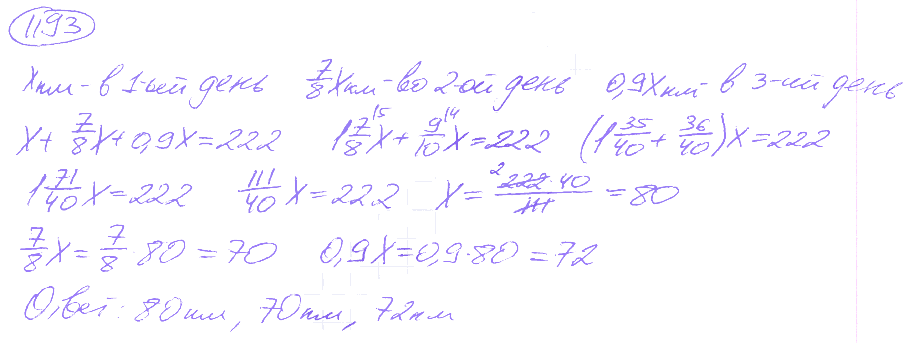 1193
x км - в 1-ый день 7/8 x км - во 2-ой день 0,9x км - в 3-ий день
x + 7/8 x + 0,9x = 222 1 7/8 ^15 x + 9/10 ^14 x = 222 (1 35/40 + 36/40) x = 222
1 71/40 x = 222 111/40 x = 222 x = ^2 222 · 40 / 111 = 80
7/8 x = 7/8 · 80 = 70 0,9x = 0,9 · 80 = 72
Ответ: 80 км, 70 км, 72 км